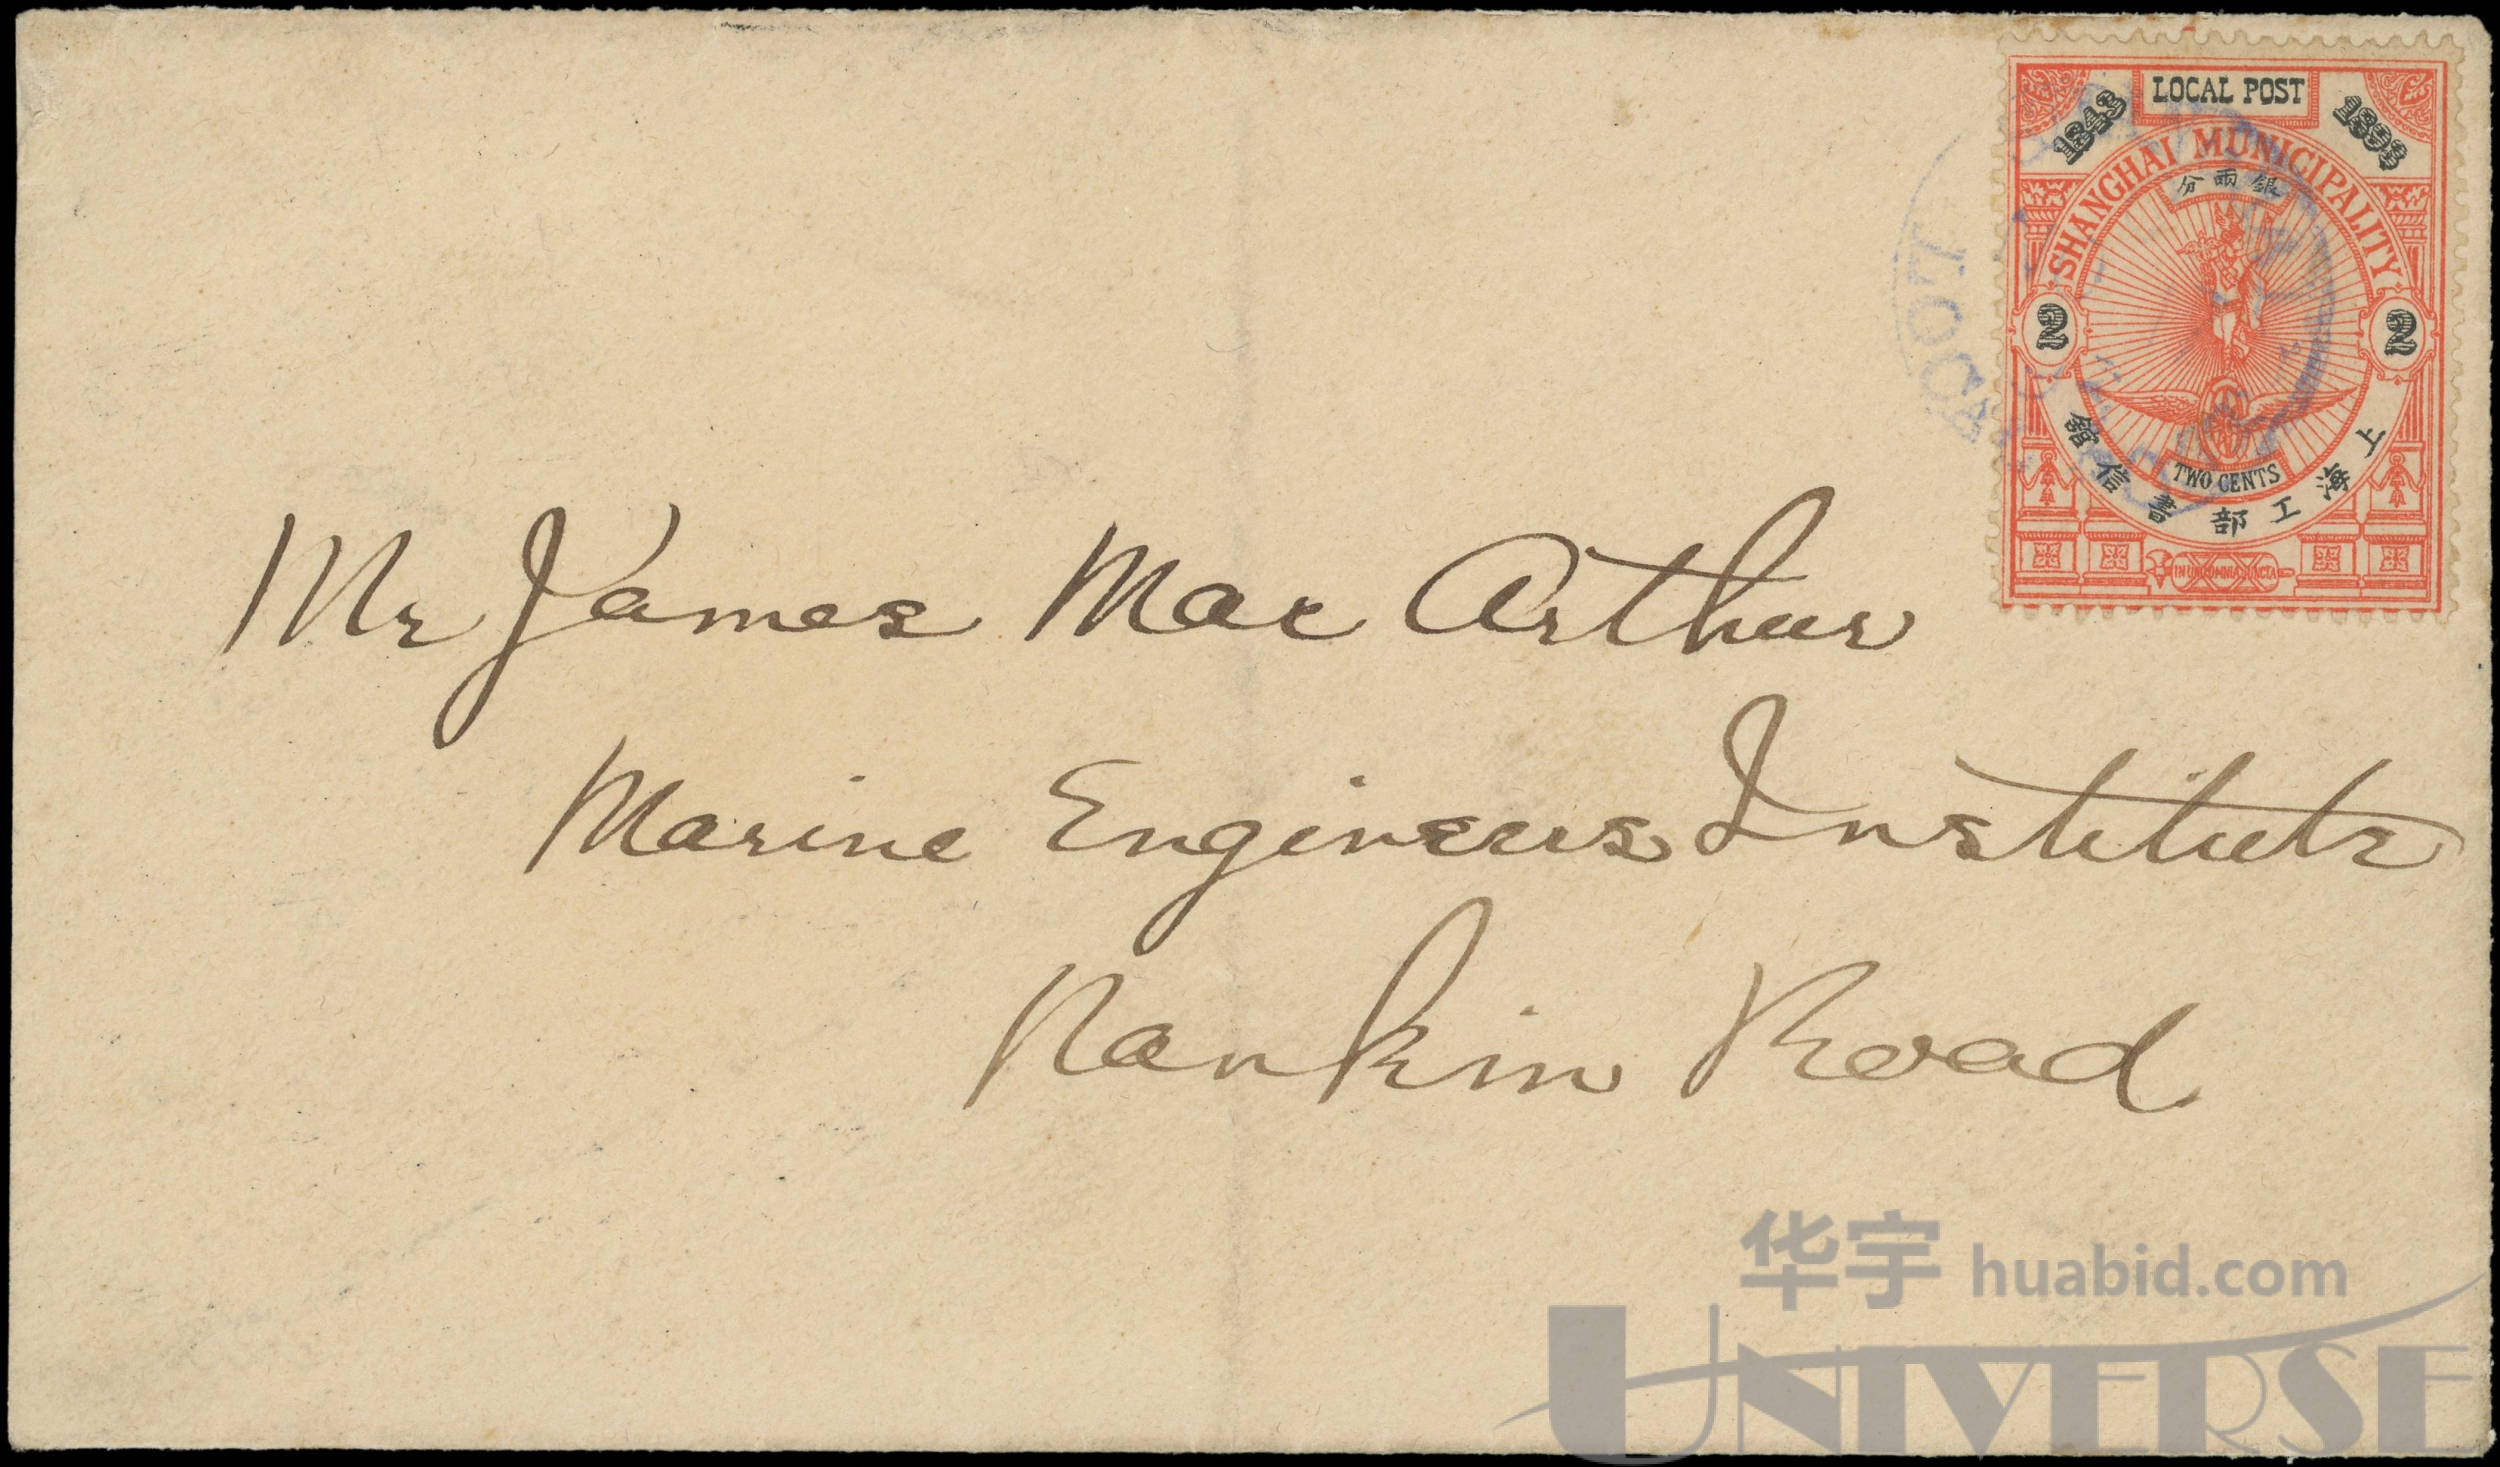 LOCAL POST
1843
1893
SHANGHAI MUNICIPALITY
銀兩分
2
2
TWO CENTS
上海工部書信館
LOCAL
Mr James Mac Arthur
Marine Engineers Institute
Nankin Road
华宇 huabid.com
UNIVERSE